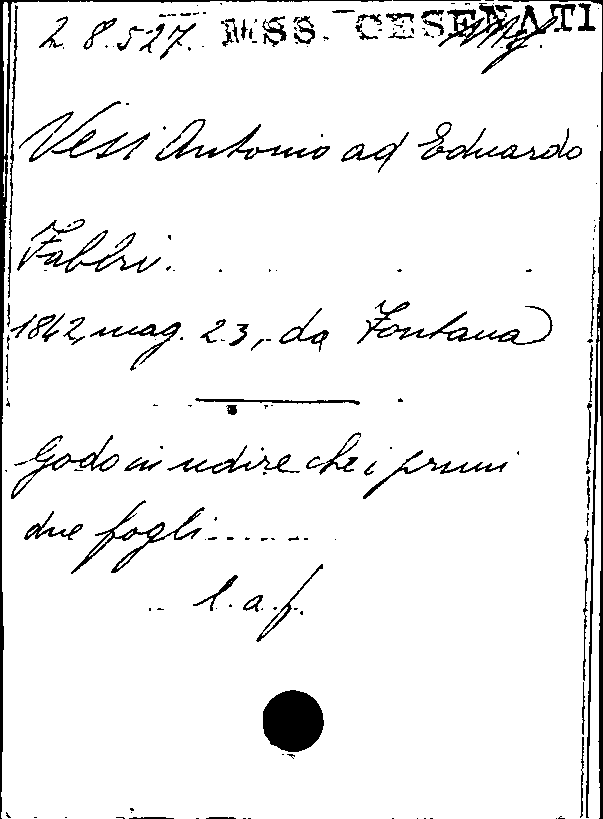 2.8.527. MSS. CESENATI
Vesi Antonio ad Eduardo
Fabbri.
1842, mag. 23, da Fontana
Godo in udire che i primi
due fogli......
l. a. f.